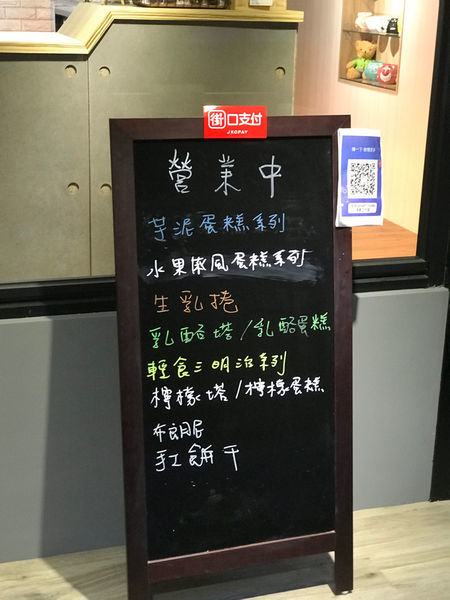 街口支付
JKOPAY
營業中
芋泥蛋糕系列
水果戚風蛋糕系列
生乳捲
乳酪塔/乳酪蛋糕
輕食三明治系列
檸檬塔/檸檬蛋糕
布朗尼
手工餅干